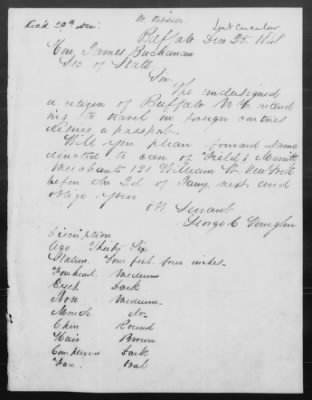 Rec'd 29th Dec.
Sent Circular
Buffalo Dec 25. 1848
Hon James Buchanan
Sec of State
Sir,
The undersigned
a citizen of Buffalo N.Y. intend
ing to travel in foreign countries
desires a passport.
Will you please forward same
directed to care of Field & Merritt
Merchants 131 William St New York
before the 2d of Jany next and
oblige your
Ob Servant
George C Vaughn
Discription
Age Thirty Six
Stature Four feet four inches.
Forehead Medium
Eyes Dark
Nose Medium
Mouth Do-
Chin Round
Hair Brown
Complexion Dark
Face Oval